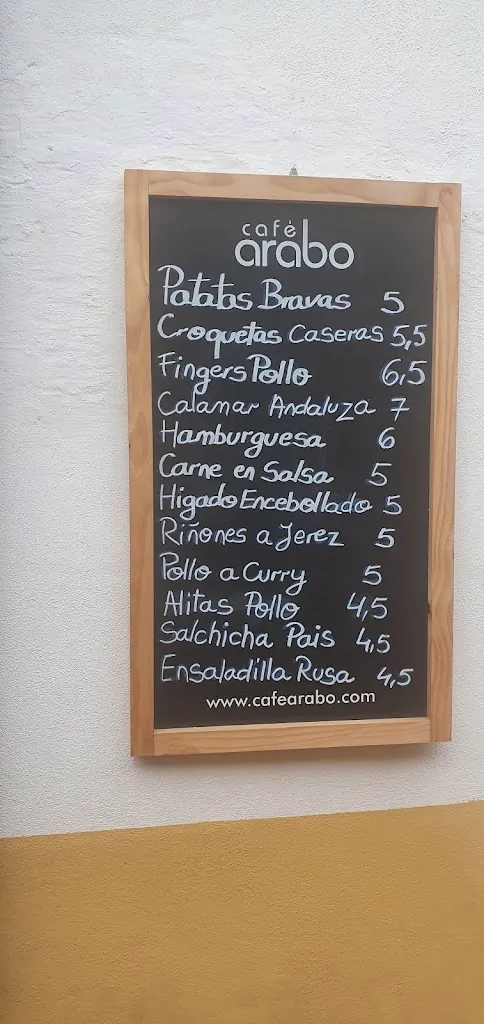 café
arabo
Patatas Bravas 5
Croquetas Caseras 5,5
Fingers Pollo 6,5
Calamar Andaluza 7
Hamburguesa 6
Carne en Salsa 5
Higado Encebollado 5
Riñones a Jerez 5
Pollo a Curry 5
Alitas Pollo 4,5
Salchicha Pais 4,5
Ensaladilla Rusa 4,5
www.cafearabo.com